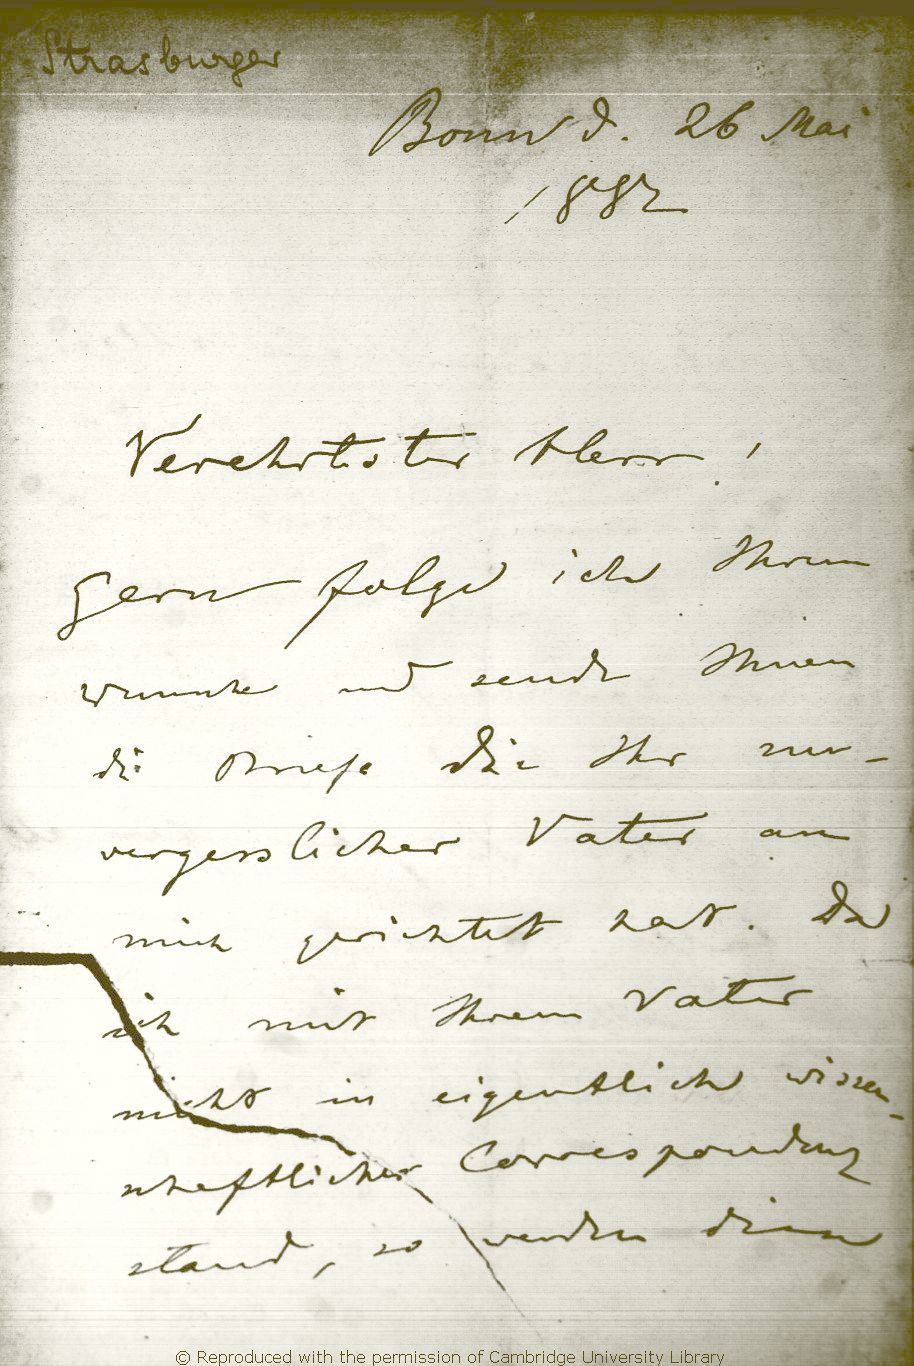 Strasburger
Bonn d. 26 Mai
1882
Verehrtester Herr!
gern folge ich Ihrem
Wunsche und sende Ihnen
die Briefe die Ihr un-
vergesslicher Vater an
mich gerichtet hat. Da
ich mit Ihrem Vater
nicht in eigentlich wissen-
schaftlicher Correspondenz
stand, so werden diese
© Reproduced with the permission of Cambridge University Library